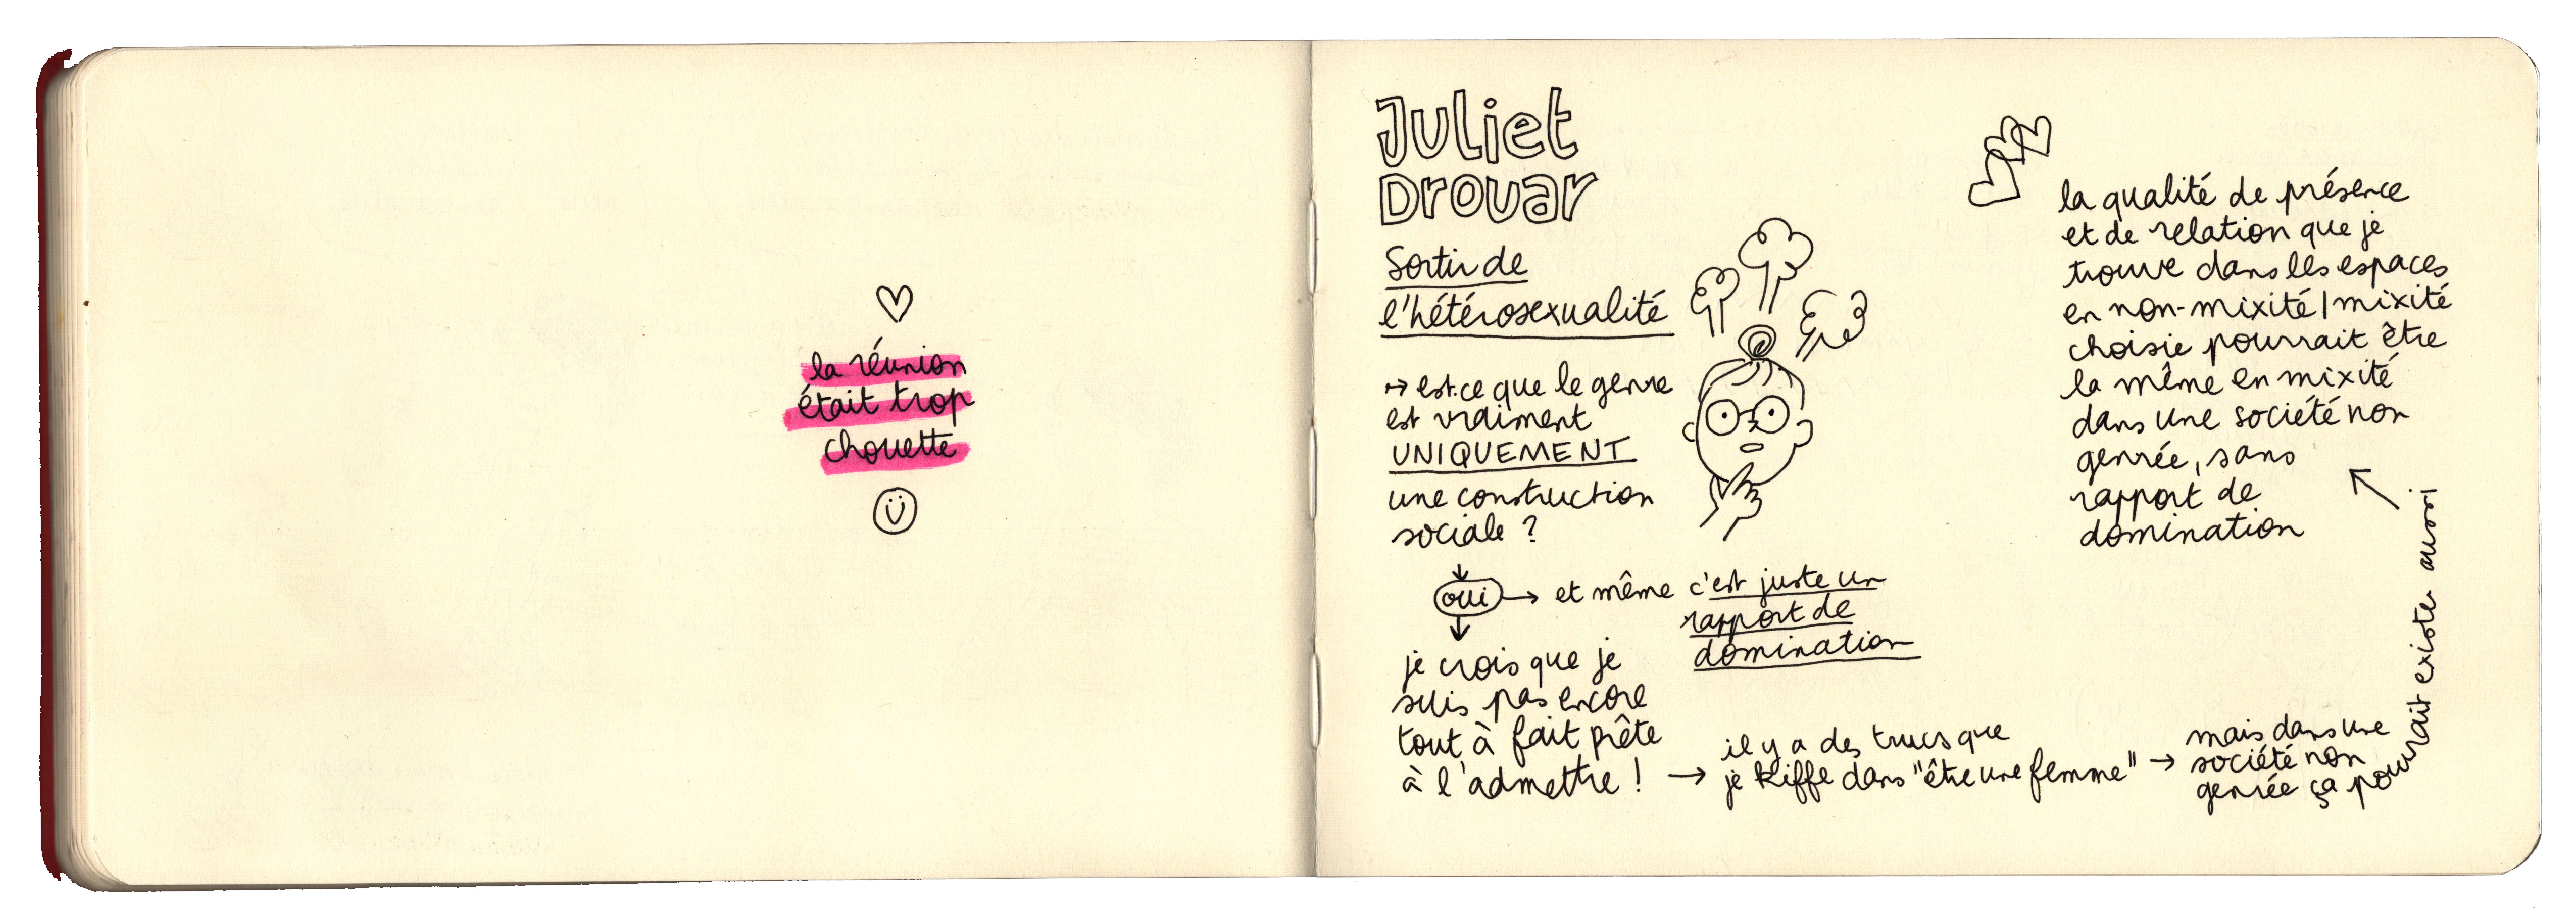 la réunion
était trop
chouette
Juliet
Drouar
Sortir de
l'hétérosexualité
↦ est-ce que le genre
est vraiment
UNIQUEMENT
une construction
sociale ?
oui → et même c'est juste un
rapport de
domination
je crois que je
suis pas encore
tout à fait prête
à l'admettre ! →
il y a des trucs que
je kiffe dans "être une femme" →
mais dans une
société non
genrée ça pourrait exister aussi
la qualité de présence
et de relation que je
trouve dans les espaces
en non-mixité/mixité
choisie pourrait être
la même en mixité
dans une société non
genrée, sans
rapport de
domination